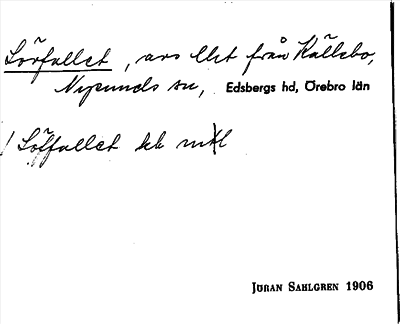 Lörfallet, avs lht från Källebo,
Nysunds sn, Edsbergs hd, Örebro län
Löffallet
JÖRAN SAHLGREN 1906